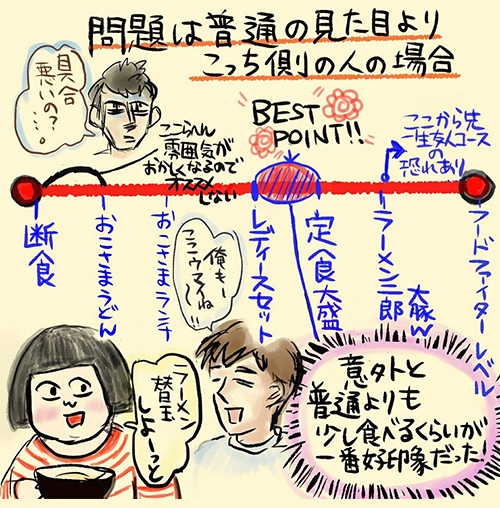 問題は普通の見た目より
こっち側の人の場合
具合
悪いの?
・・・。
BEST
POINT!!
ここから先
一生友人コース
の
恐れあり
ここらへん
雰囲気が
おかしくなるので
オススメ
しない
断食
おこさまうどん
おこさまランチ
レディースセット
定食大盛
ラーメン二郎
大豚W
フードファイターレベル
俺もーね
ラーメン
替玉
しよーっと
意外と
普通よりも
少し食べるくらいが
一番好印象だった!